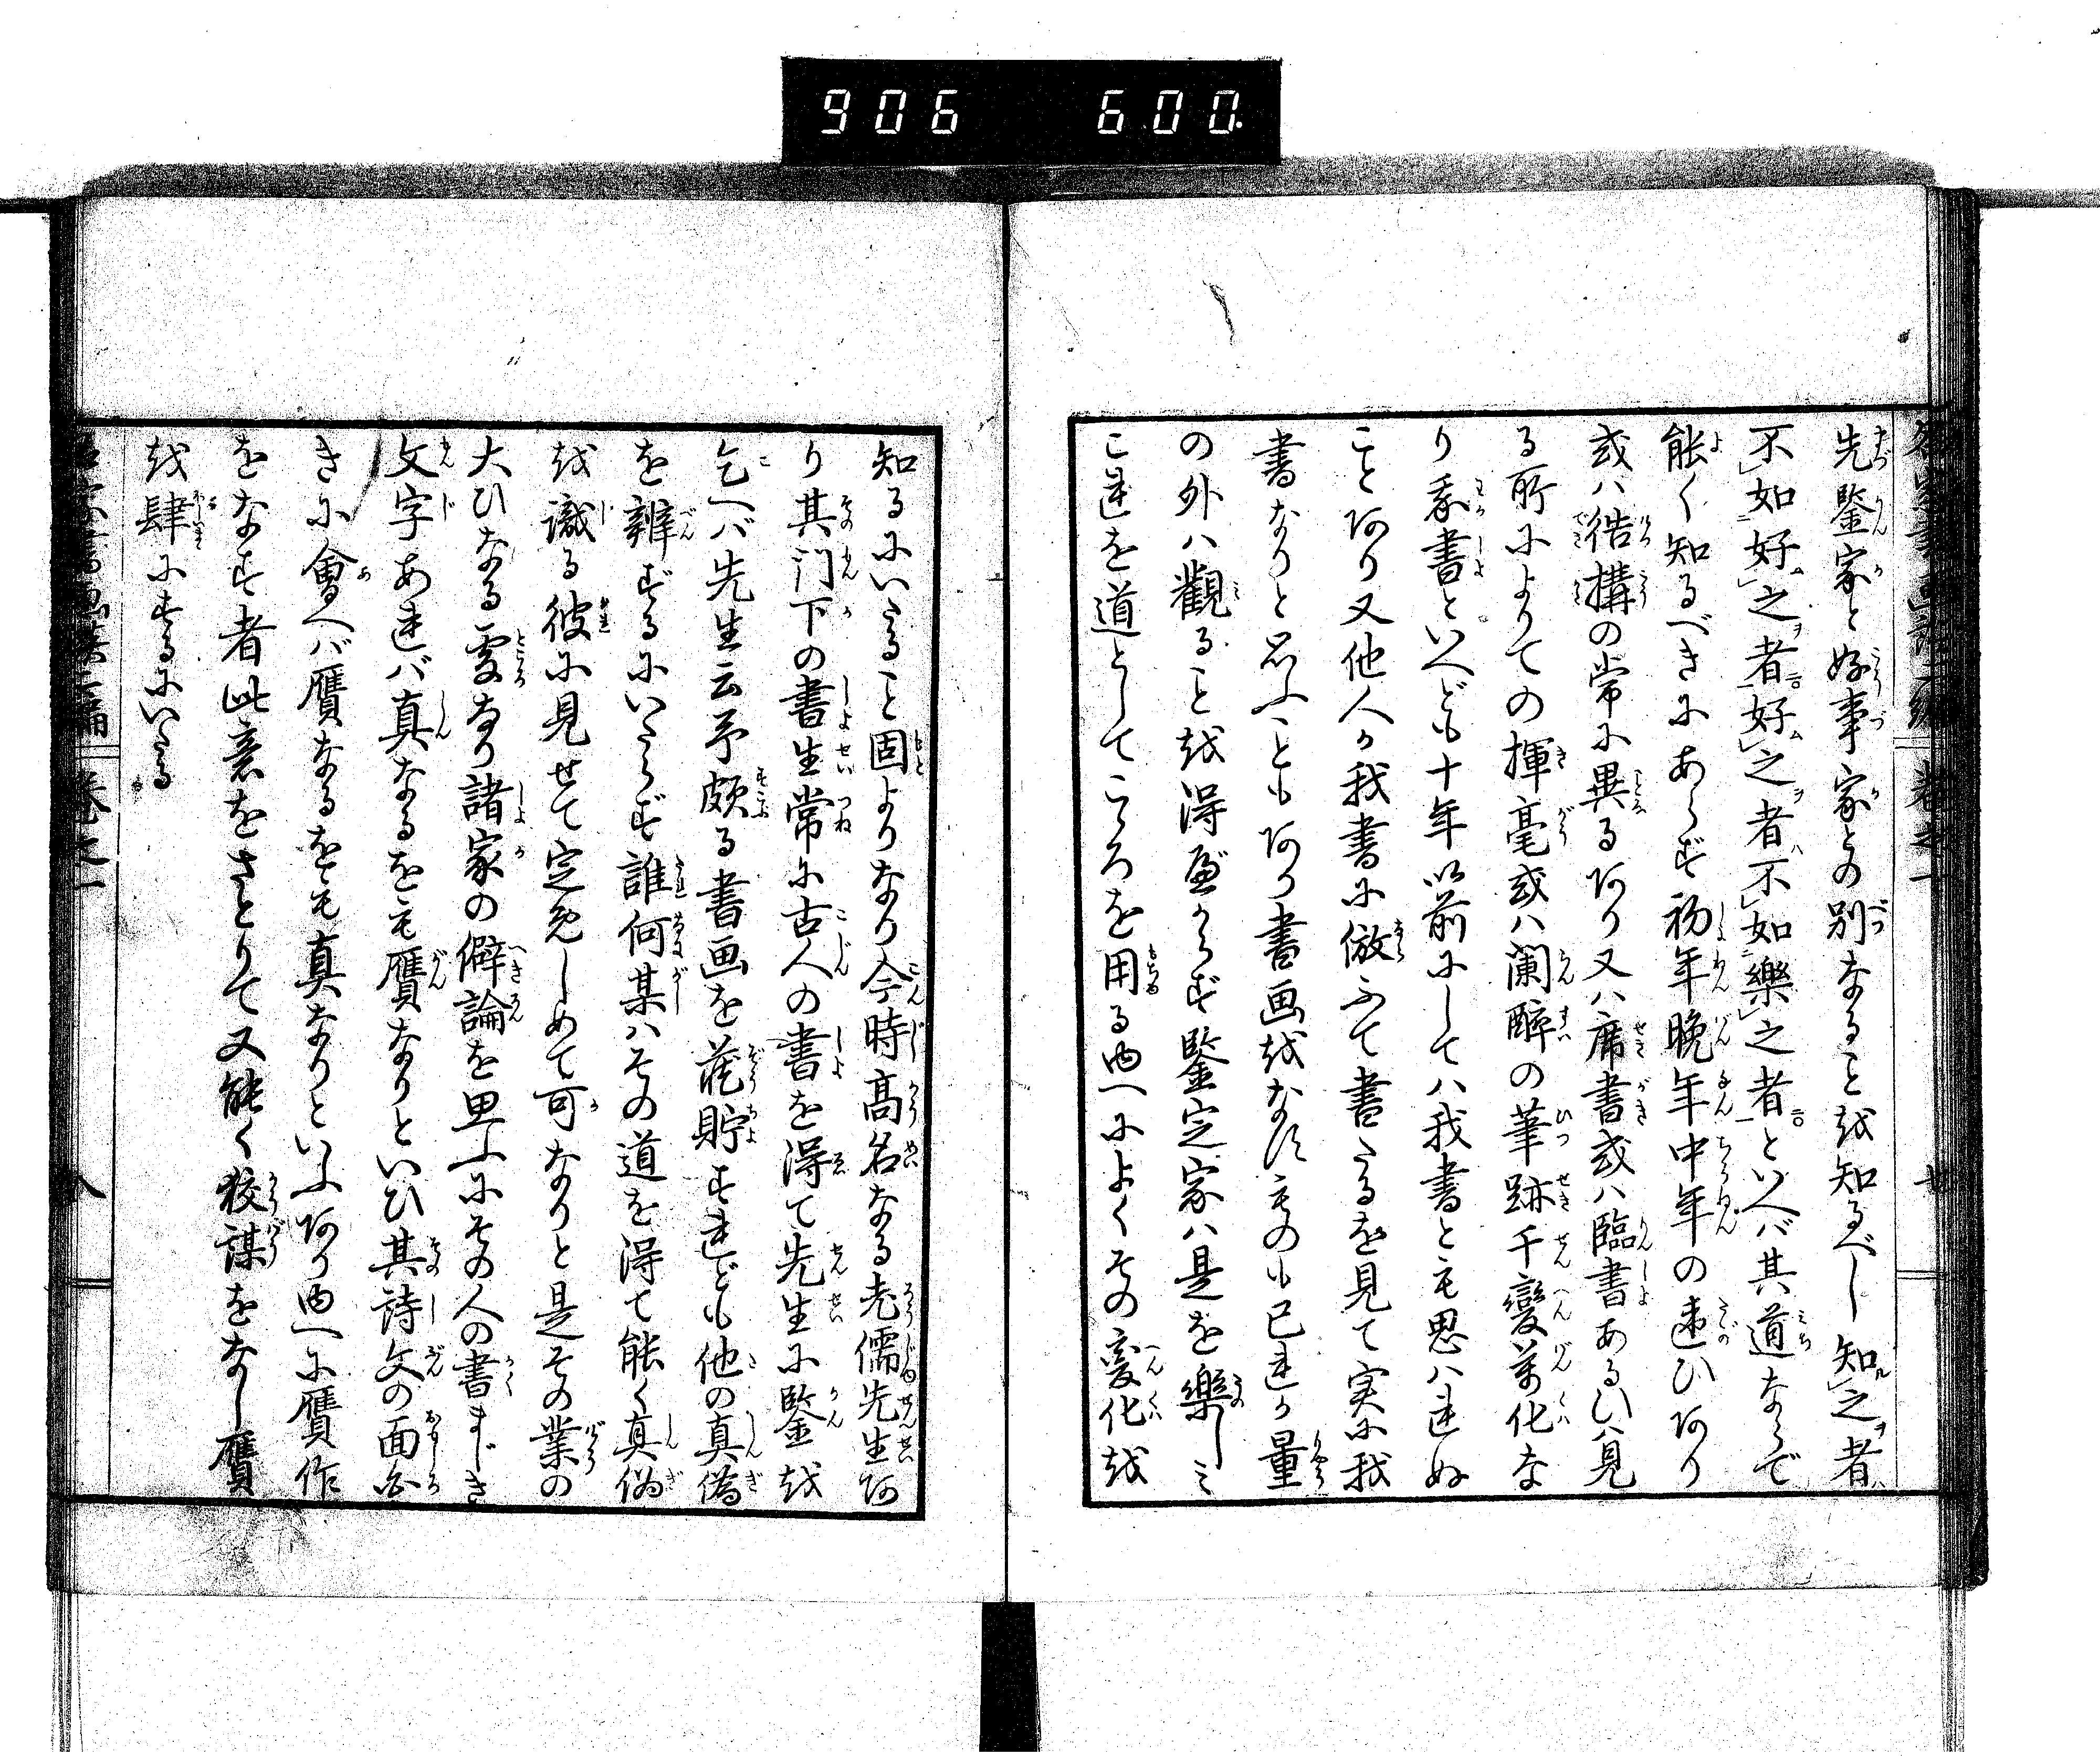 906 600
先鑒家と好事家との別なること越知るべし知之者
不如好之者好之者不如樂之者といへバ其道ならで
能く知るべきにあらず初年晩年中年の違ひあり
或ハ結構の常に異るあり又ハ席書或ハ臨書あるひハ見
る所によりての揮毫或ハ瀾醉の筆跡千變萬化な
り我書といへども十年以前にしてハ我書とも思ハれぬ
ことあり又他人の我書に倣ふて書たるを見て実に我
書なりと思ふこともあり書画越なすものも已れが量
の外ハ觀ること越得べからず鑒定家ハ是を樂しミ
これを道としてこゝろを用る由へによくその変化越
知るにいたること固よりなり今時高名なる老儒先生あ
り其门下の書生常に古人の書を得て先生に鑒越
乞へバ先生云予頗る書画を蔵貯すれども他の真偽
を辨ずるにいたらず誰何某ハその道を得て能く真偽
越識る彼に見せて定免しめて可なりと是その業の
大ひなる処なり諸家の僻論を思ふにその人の書まじき
文字あれバ真なるをも贋なりといひ其詩文の面白
きに會へバ贋なるをも真なりといふあり由へに贋作
をなす者此意をさとりて又能く狡謀をなし贋
越肆にするにいたる
卷之一
八